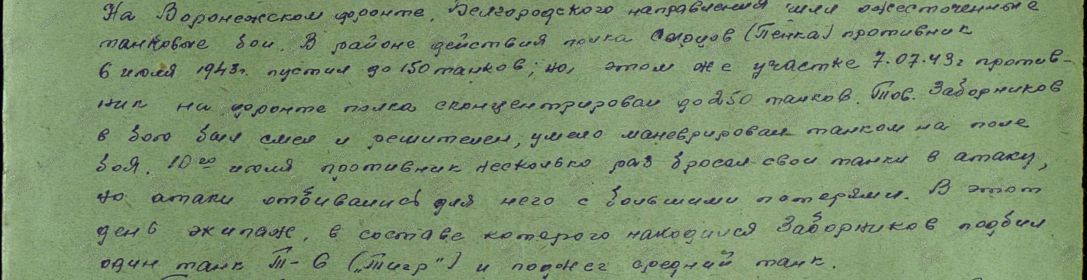 На Воронежском фронте, Белгородского направления шли ожесточенные
танковые бои. В районе действия полка Сырцов (Пенка) противник
6 июля 1943г. пустил до 150 танков; но, этом же участке 7.07.43г против-
ник на фронте полка сконцентрировал до 250 танков. Тов. Заборников
в бою был смел и решителен, умело маневрировал танком на поле
боя. 10го июля противник несколько раз бросал свои танки в атаку,
но атаки отбивались для него с большими потерями. В этот
день экипаж, в составе которого находился Заборников подбил
один танк Т-6 („Тигр") и поджег средний танк.